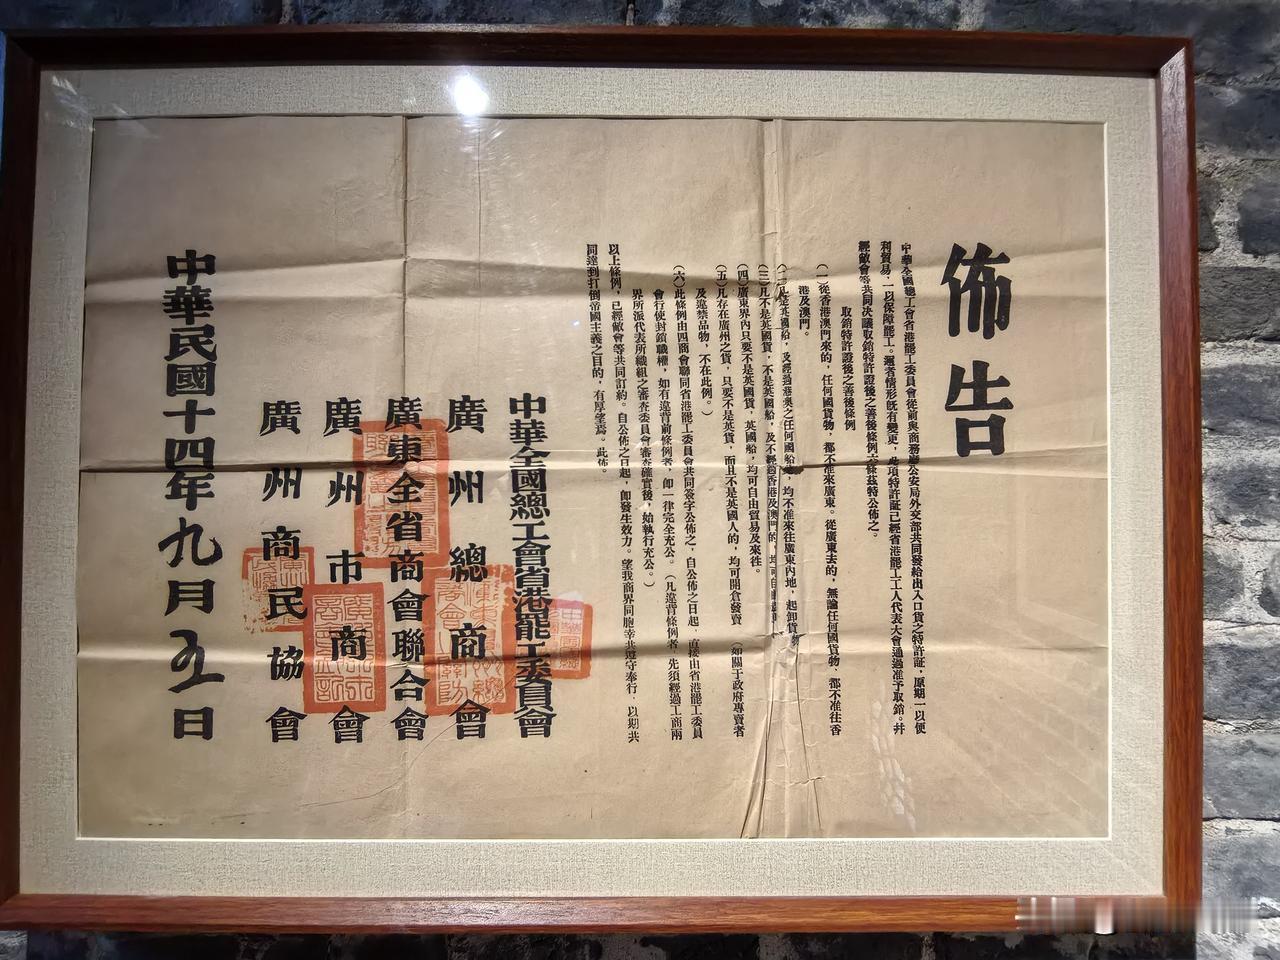 佈告
中華全國總工會省港罷工委員會從前與商務廳公安局外交部共同發給出入口貨之特許証，原期一以便
利貿易，一以保障罷工。邇者情形既有變更，此項特許証已經省港罷工工人代表大會通過准予取銷。并
經敝會等共同决議取銷特許證後之善後條例六條茲特公佈之。
取銷特許證後之善後條例
（一）從香港澳門來的，任何國貨物，都不准來廣東。從廣東去的，無論任何國貨物，都不准往香
港及澳門。
（二）凡是英國船，及經過港澳之任何國船隻，均不准來往廣東內地，起卸貨物。
（三）凡不是英國貨，不是英國船，及不經過香港及澳門的，均可自由
（四）廣東界內只要不是英國貨，英國船，均可自由貿易及來往。
（五）凡存在廣州之貨，只要不是英貨，而且不是英國人的，均可開倉發賣（如關于政府專賣者
及違禁品物，不在此例。）
（六）此條例由四商會聯同省港罷工委員會共同簽字公佈之，自公佈之日起，直接由省港罷工委員
會行使封鎖職權，如有違背前條例者，卽一律完全充公。（凡違背條例者，先須經過工商兩
界所派代表所織組之審查委員會審查確實後，始執行充公。）
以上條例，已經敝會等共同訂約。自公佈之日起，卽發生效力。望我商界同胞幸共遵守奉行，以期共
同達到打倒帝國主義之目的，有厚望焉。此佈。
中華全國總工會省港罷工委員會
廣州總商會
廣東全省商會聯合會
廣州市商會
廣州商民協會
中華民國十四年九月五日